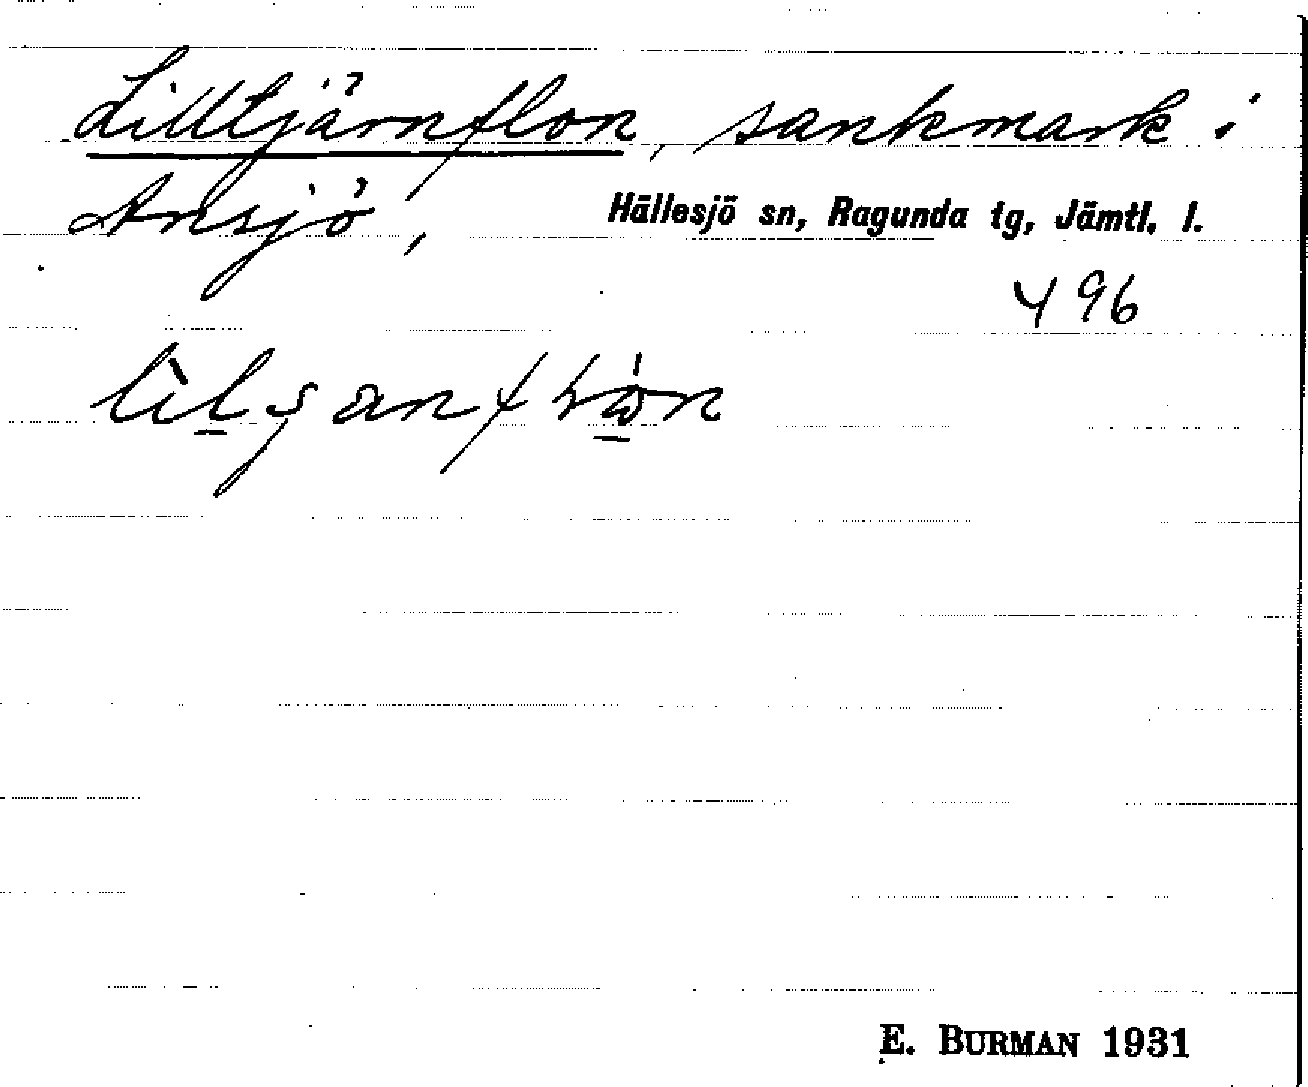 Lilltjärnflon, sankmark i
Ansjö, Hällesjö sn, Ragunda tg, Jämtl. l.
496
E. BURMAN 1931